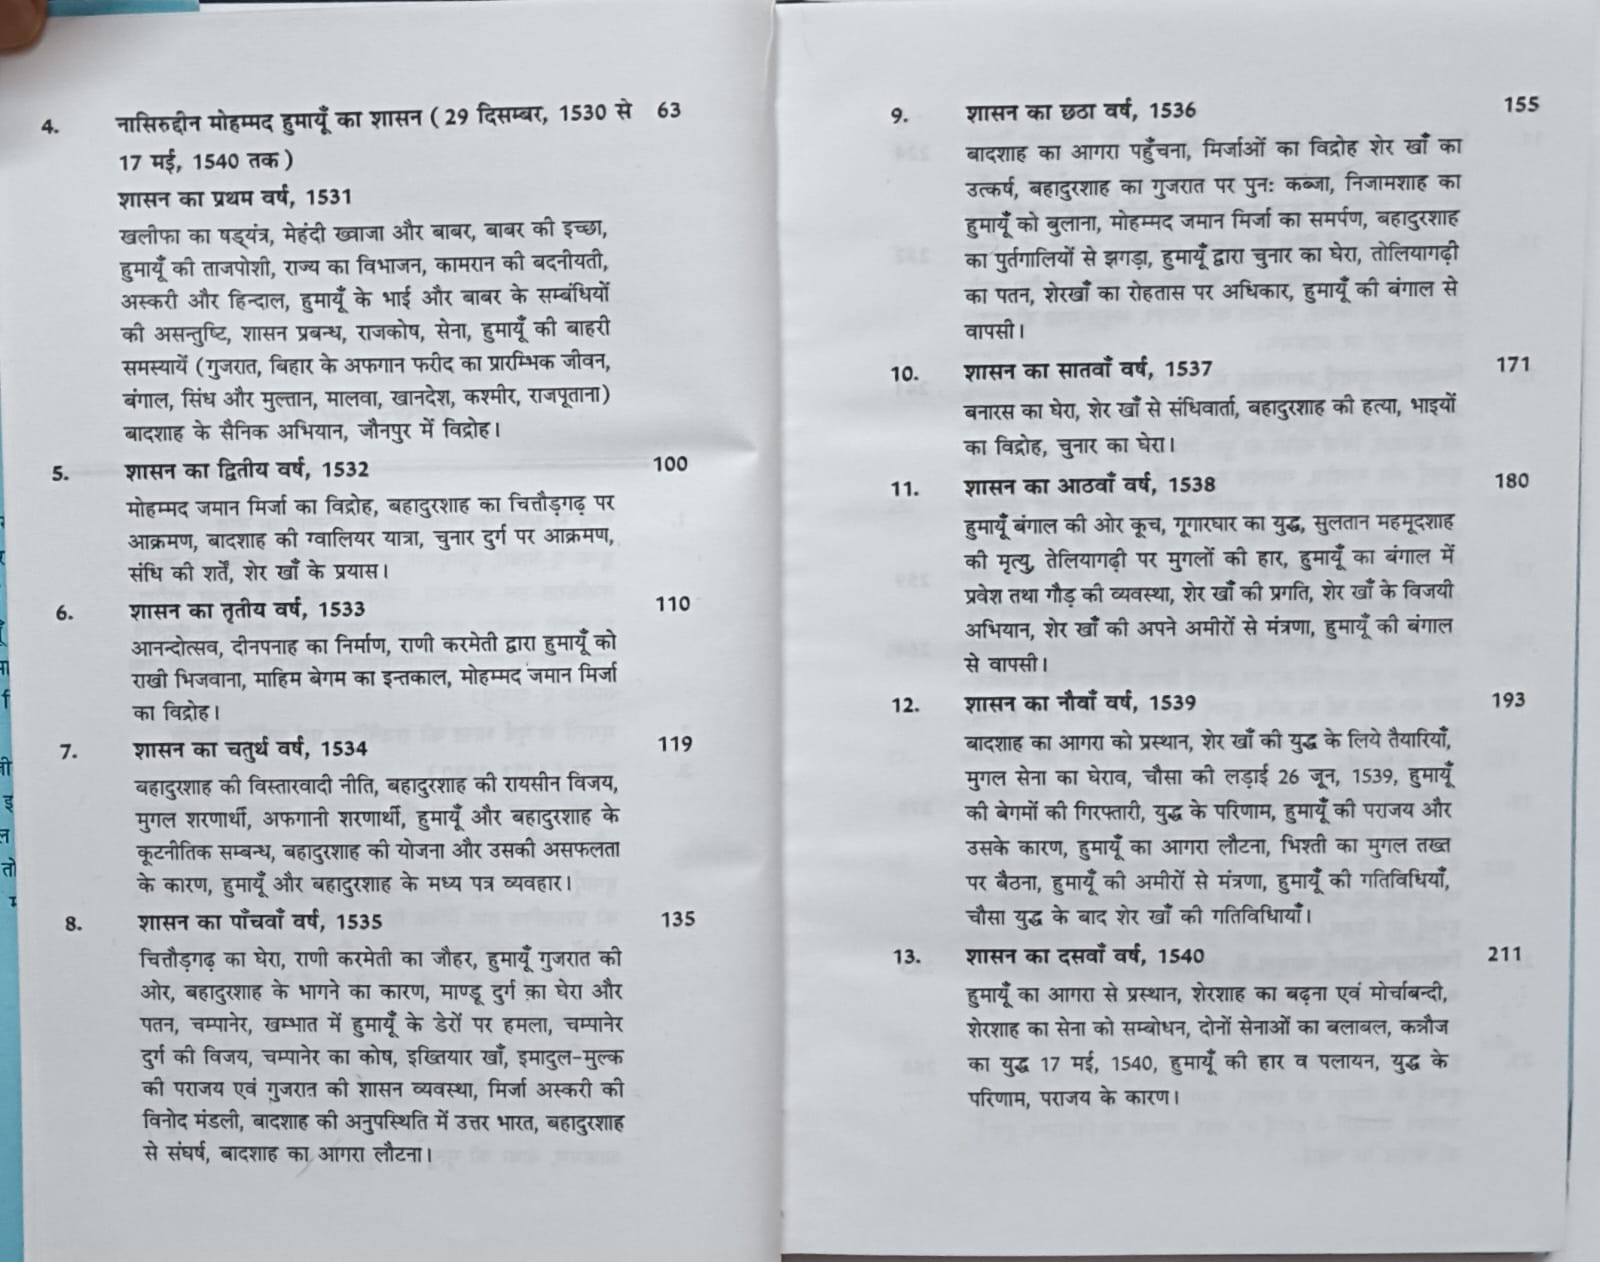 4. नासिरुद्दीन मोहम्मद हुमायूँ का शासन ( 29 दिसम्बर, 1530 से 63
17 मई, 1540 तक )
शासन का प्रथम वर्ष, 1531
खलीफा का षड्यंत्र, मेहंदी ख्वाजा और बाबर, बाबर की इच्छा,
हुमायूँ की ताजपोशी, राज्य का विभाजन, कामरान की बदनीयती,
अस्करी और हिन्दाल, हुमायूँ के भाई और बाबर के सम्बंधियों
की असन्तुष्टि, शासन प्रबन्ध, राजकोष, सेना, हुमायूँ की बाहरी
समस्यायें (गुजरात, बिहार के अफगान फरीद का प्रारम्भिक जीवन,
बंगाल, सिंध और मुल्तान, मालवा, खानदेश, कश्मीर, राजपूताना)
बादशाह के सैनिक अभियान, जौनपुर में विद्रोह।
5. शासन का द्वितीय वर्ष, 1532 100
मोहम्मद जमान मिर्जा का विद्रोह, बहादुरशाह का चित्तौड़गढ़ पर
आक्रमण, बादशाह की ग्वालियर यात्रा, चुनार दुर्ग पर आक्रमण,
संधि की शर्तें, शेर खाँ के प्रयास।
6. शासन का तृतीय वर्ष, 1533 110
आनन्दोत्सव, दीनपनाह का निर्माण, राणी करमेती द्वारा हुमायूँ को
राखी भिजवाना, माहिम बेगम का इन्तकाल, मोहम्मद जमान मिर्जा
का विद्रोह।
7. शासन का चतुर्थ वर्ष, 1534 119
बहादुरशाह की विस्तारवादी नीति, बहादुरशाह की रायसीन विजय,
मुगल शरणार्थी, अफगानी शरणार्थी, हुमायूँ और बहादुरशाह के
कूटनीतिक सम्बन्ध, बहादुरशाह की योजना और उसकी असफलता
के कारण, हुमायूँ और बहादुरशाह के मध्य पत्र व्यवहार।
8. शासन का पाँचवाँ वर्ष, 1535 135
चित्तौड़गढ़ का घेरा, राणी करमेती का जौहर, हुमायूँ गुजरात की
ओर, बहादुरशाह के भागने का कारण, माण्डू दुर्ग का घेरा और
पतन, चम्पानेर, खम्भात में हुमायूँ के डेरों पर हमला, चम्पानेर
दुर्ग की विजय, चम्पानेर का कोष, इख्तियार खाँ, इमादुल-मुल्क
की पराजय एवं गुजरात की शासन व्यवस्था, मिर्जा अस्करी की
विनोद मंडली, बादशाह की अनुपस्थिति में उत्तर भारत, बहादुरशाह
से संघर्ष, बादशाह का आगरा लौटना।
9. शासन का छठा वर्ष, 1536 155
बादशाह का आगरा पहुँचना, मिर्जाओं का विद्रोह शेर खाँ का
उत्कर्ष, बहादुरशाह का गुजरात पर पुनः कब्जा, निजामशाह का
हुमायूँ को बुलाना, मोहम्मद जमान मिर्जा का समर्पण, बहादुरशाह
का पुर्तगालियों से झगड़ा, हुमायूँ द्वारा चुनार का घेरा, तोलियागढ़ी
का पतन, शेरखाँ का रोहतास पर अधिकार, हुमायूँ की बंगाल से
वापसी।
10. शासन का सातवाँ वर्ष, 1537 171
बनारस का घेरा, शेर खाँ से संधिवार्ता, बहादुरशाह की हत्या, भाइयों
का विद्रोह, चुनार का घेरा।
11. शासन का आठवाँ वर्ष, 1538 180
हुमायूँ बंगाल की ओर कूच, गूगारघार का युद्ध, सुलतान महमूदशाह
की मृत्यु, तेलियागढ़ी पर मुगलों की हार, हुमायूँ का बंगाल में
प्रवेश तथा गौड़ की व्यवस्था, शेर खाँ की प्रगति, शेर खाँ के विजयी
अभियान, शेर खाँ की अपने अमीरों से मंत्रणा, हुमायूँ की बंगाल
से वापसी।
12. शासन का नौवाँ वर्ष, 1539 193
बादशाह का आगरा को प्रस्थान, शेर खाँ की युद्ध के लिये तैयारियाँ,
मुगल सेना का घेराव, चौसा की लड़ाई 26 जून, 1539, हुमायूँ
की बेगमों की गिरफ्तारी, युद्ध के परिणाम, हुमायूँ की पराजय और
उसके कारण, हुमायूँ का आगरा लौटना, भिश्ती का मुगल तख्त
पर बैठना, हुमायूँ की अमीरों से मंत्रणा, हुमायूँ की गतिविधियाँ,
चौसा युद्ध के बाद शेर खाँ की गतिविधिायाँ।
13. शासन का दसवाँ वर्ष, 1540 211
हुमायूँ का आगरा से प्रस्थान, शेरशाह का बढ़ना एवं मोर्चाबन्दी,
शेरशाह का सेना को सम्बोधन, दोनों सेनाओं का बलाबल, कन्नौज
का युद्ध 17 मई, 1540, हुमायूँ की हार व पलायन, युद्ध के
परिणाम, पराजय के कारण।